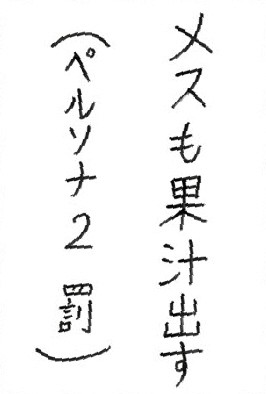 メスも果汁出す
（ペルソナ2 罰）